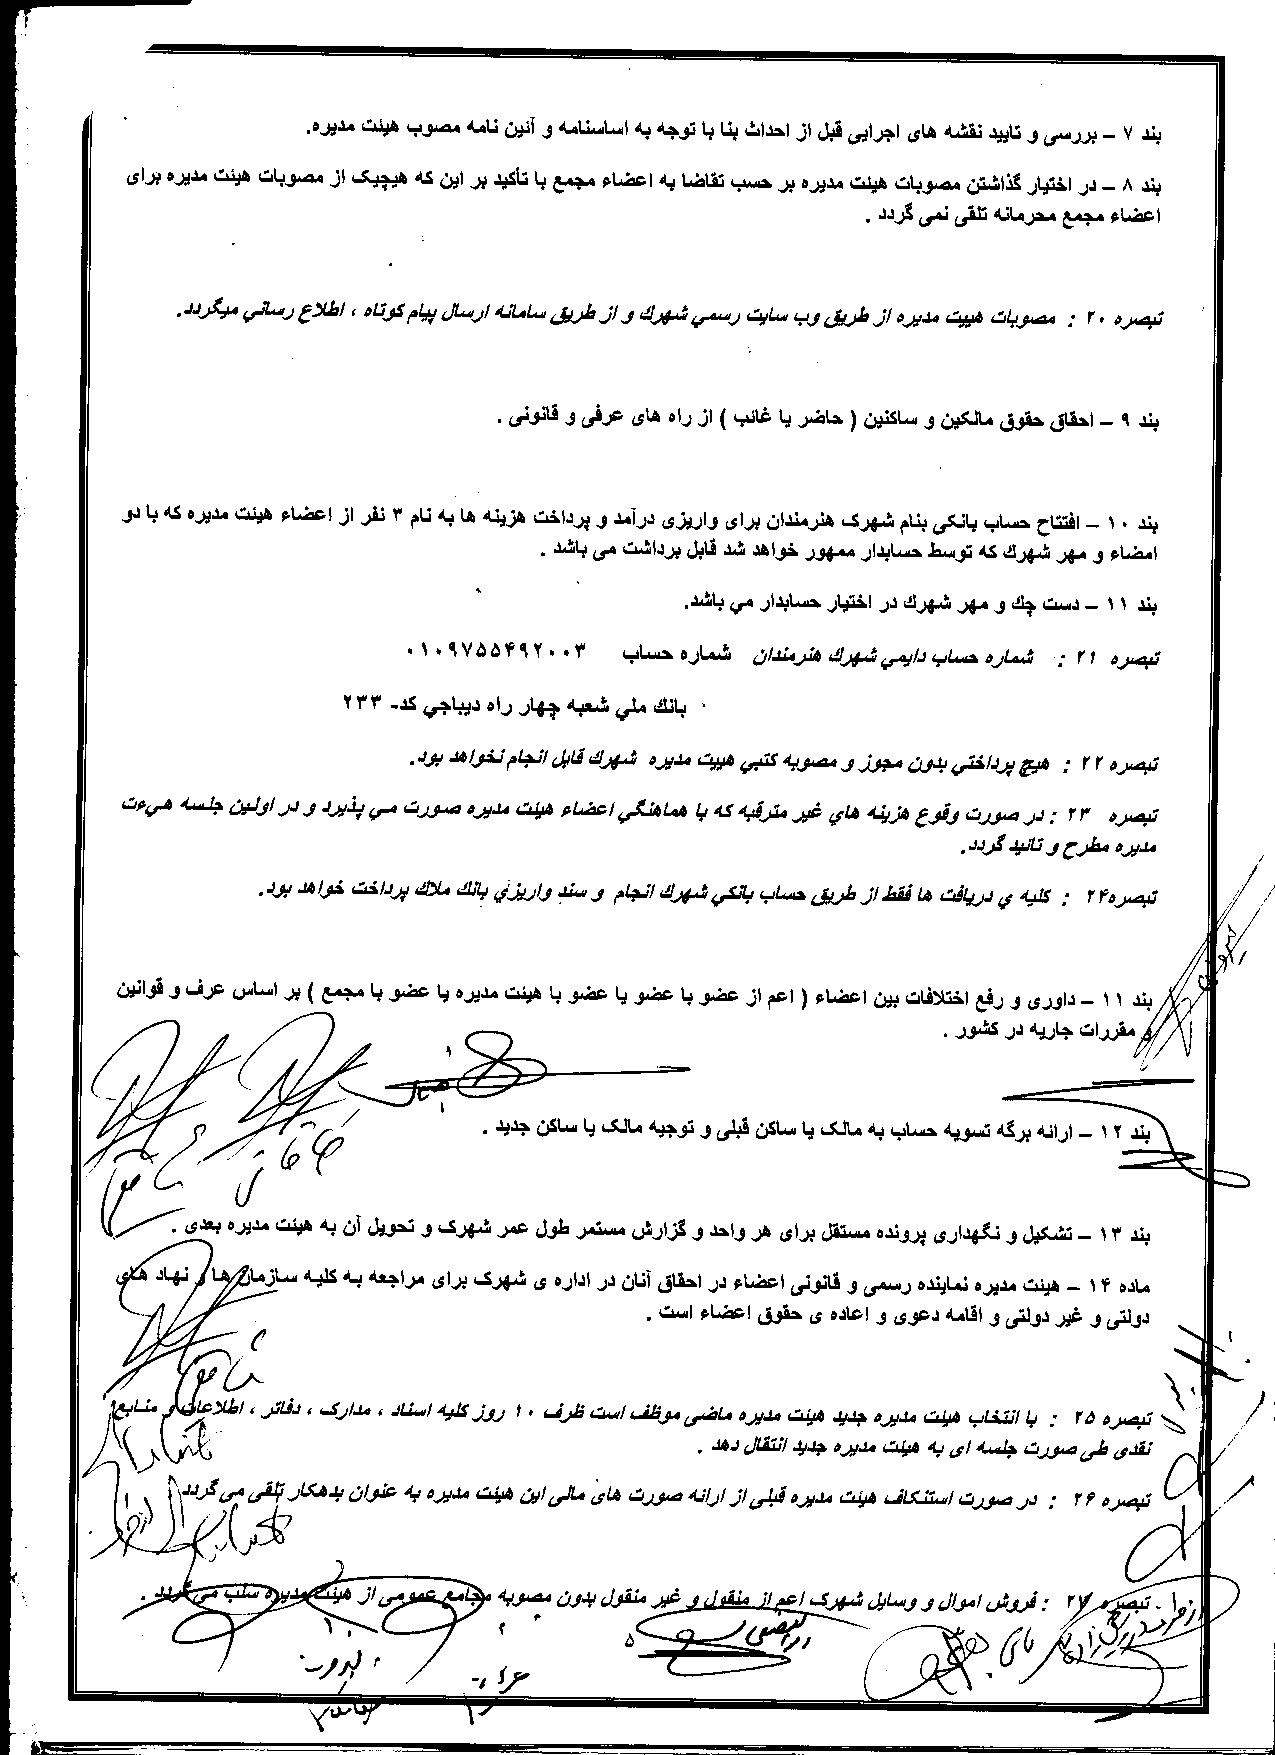 بند ۷ – بررسی و تایید نقشه های اجرایی قبل از احداث بنا با توجه به اساسنامه و آئین نامه مصوب هیئت مدیره.
بند ۸ – در اختیار گذاشتن مصوبات هیئت مدیره بر حسب تقاضا به اعضاء مجمع با تأکید بر این که هیچیک از مصوبات هیئت مدیره برای
اعضاء مجمع محرمانه تلقی نمی گردد .
تبصره ۲۰ : مصوبات هییت مدیره از طریق وب سایت رسمي شهرك و از طریق سامانه ارسال پیام کوتاه ، اطلاع رساني میگردد.
بند ۹ – احقاق حقوق مالکین و ساکنین ( حاضر یا غائب ) از راه های عرفی و قانونی .
بند ۱۰ – افتتاح حساب بانکی بنام شهرک هنرمندان برای واریزی درآمد و پرداخت هزینه ها به نام ۳ نفر از اعضاء هیئت مدیره که با دو
امضاء و مهر شهرك که توسط حسابدار ممهور خواهد شد قابل برداشت می باشد .
بند ۱۱ – دست چك و مهر شهرك در اختیار حسابدار مي باشد.
تبصره ۲۱ : شماره حساب دایمي شهرك هنرمندان شماره حساب ۰۱۰۹۷۵۵۴۹۲۰۰۳
بانك ملي شعبه چهار راه دیباجي کد- ۲۳۳
تبصره ۲۲ : هیچ پرداختي بدون مجوز و مصوبه کتبي هییت مدیره شهرك قابل انجام نخواهد بود.
تبصره ۲۳ : در صورت وقوع هزینه هاي غیر مترقبه که با هماهنگي اعضاء هیئت مدیره صورت مي پذیرد و در اولین جلسه هیءت
مدیره مطرح و تائید گردد.
تبصره۲۴ : کلیه ي دریافت ها فقط از طریق حساب بانکي شهرك انجام و سند واریزي بانك ملاك پرداخت خواهد بود.
بند ۱۱ – داوری و رفع اختلافات بین اعضاء ( اعم از عضو با عضو یا عضو با هیئت مدیره یا عضو با مجمع ) بر اساس عرف و قوانین
و مقررات جاریه در کشور .
بند ۱۲ – ارائه برگه تسویه حساب به مالک یا ساکن قبلی و توجیه مالک یا ساکن جدید .
بند ۱۳ – تشکیل و نگهداری پرونده مستقل برای هر واحد و گزارش مستمر طول عمر شهرک و تحویل آن به هیئت مدیره بعدی .
ماده ۱۴ – هیئت مدیره نماینده رسمی و قانونی اعضاء در احقاق آنان در اداره ی شهرک برای مراجعه به کلیه سازمان ها و نهاد های
دولتی و غیر دولتی و اقامه دعوی و اعاده ی حقوق اعضاء است .
تبصره ۲۵ : با انتخاب هیئت مدیره جدید هیئت مدیره ماضی موظف است ظرف ۱۰ روز کلیه اسناد ، مدارک ، دفاتر ، اطلاعات و منابع
نقدی طی صورت جلسه ای به هیئت مدیره جدید انتقال دهد .
تبصره ۲۶ : در صورت استنکاف هیئت مدیره قبلی از ارائه صورت های مالی این هیئت مدیره به عنوان بدهکار تلقی می گردد
تبصره ۲۷ : فروش اموال و وسایل شهرک اعم از منقول و غیر منقول بدون مصوبه مجامع عمومی از هیئت مدیره سلب می گردد .